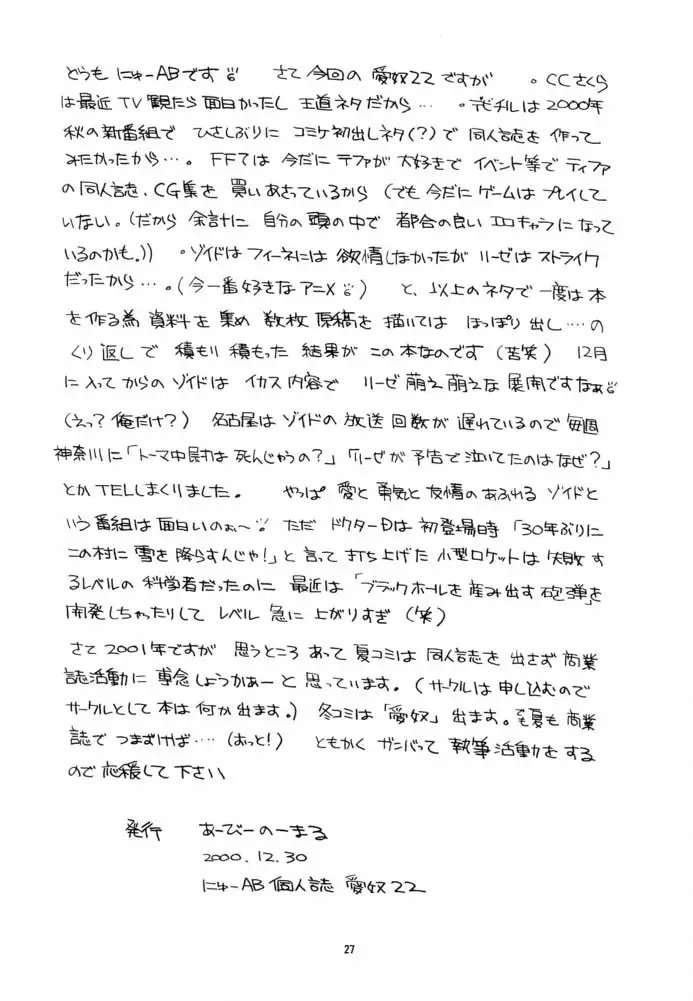 どうも にゅーABです さて 今回の 愛奴22 ですが 。CCさくら
は最近 TV 観たら 面白かったし 王道ネタだから… 。デビチルは2000年
秋の新番組で ひさしぶりに コミケ初出しネタ(?)で 同人誌を 作って
みたかったから…。FF7は 今だに ティファが 大好きで イベント等で ティファ
の同人誌、CG集を 買いあさっているから (でも今だに ゲームは プレイして
いない。(だから 余計に 自分の 頭の中で 都合の良い エロキャラになって
いるのかも。)) 。ゾイドは フィーネには 欲情しなかったが リーゼは ストライク
だったから…。(今一番好きな アニメ) と、以上のネタで 一度は本
を作る為 資料を 集め 数枚 原稿を 描いては ほっぽり出し…の
くり返しで 積もり積もった 結果が この本なのです (苦笑) 12月
に入ってからの ゾイドは イカス内容で リーゼ萌え萌えな 展開ですなぁ
(えっ?俺だけ?) 名古屋は ゾイドの 放送回数が 遅れているので 毎週
神奈川に「トーマ中尉は 死んじゃうの?」「リーゼが予告で泣いてたのはなぜ?」
とか TELしまくりました。 やっぱ 愛と 勇気と 友情の あふれる ゾイドと
いう番組は 面白いのぉ〜 ただ ドクターDは 初登場時「30年ぶりに
この村に 雪を 降らすんじゃ!」と言って 打ち上げた 小型ロケットは 失敗す
るレベルの 科学者だったのに 最近は「ブラックホールを 産み出す 砲弾」を
開発しちゃったりして レベル 急に 上がりすぎ (笑)
さて 2001年ですが 思うところ あって 夏コミは 同人誌を 出さず 商業
誌活動に 専念しようかぁーと 思っています。(サークルは 申し込むので
サークルとして 本は 何か 出ます。) 冬コミは「愛奴」出ます。でも夏も 商業
誌で つまずけば…(おっと!) ともかく ガンバって 執筆活動を する
ので 応援して 下さい
発行 あーびーのーまる
2000.12.30
にゅーAB 個人誌 愛奴22
27